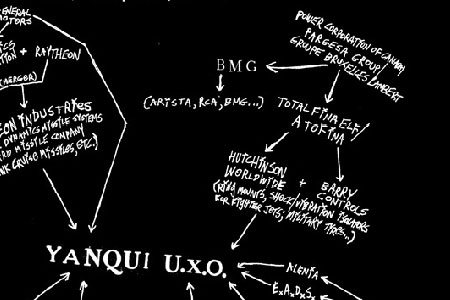 GENERAL
TORS
ICS
TION + RAYTHEON
(MERGER)
EON INDUSTRIES
DYNAMICS MISSILE SYSTEMS
RD MISSILE COMPANY
NK CRUISE MISSILES, ETC.)
POWER CORPORATION OF CANADA/
PARGESA GROUP/
GROUPE BRUXELLES LAMBERT
BMG
(ARISTA, RCA, BMG...)
TOTALFINA ELF/
ATOFINA
HUTCHINSON
WORLDWIDE + BARRY
CONTROLS
MOUNTS, SHOCK/VIBRATION ISOLATORS
FOR FIGHTER JETS, MILITARY TIRES...)
YANQUI U.X.O.
ALENIA
E.A.D.S.